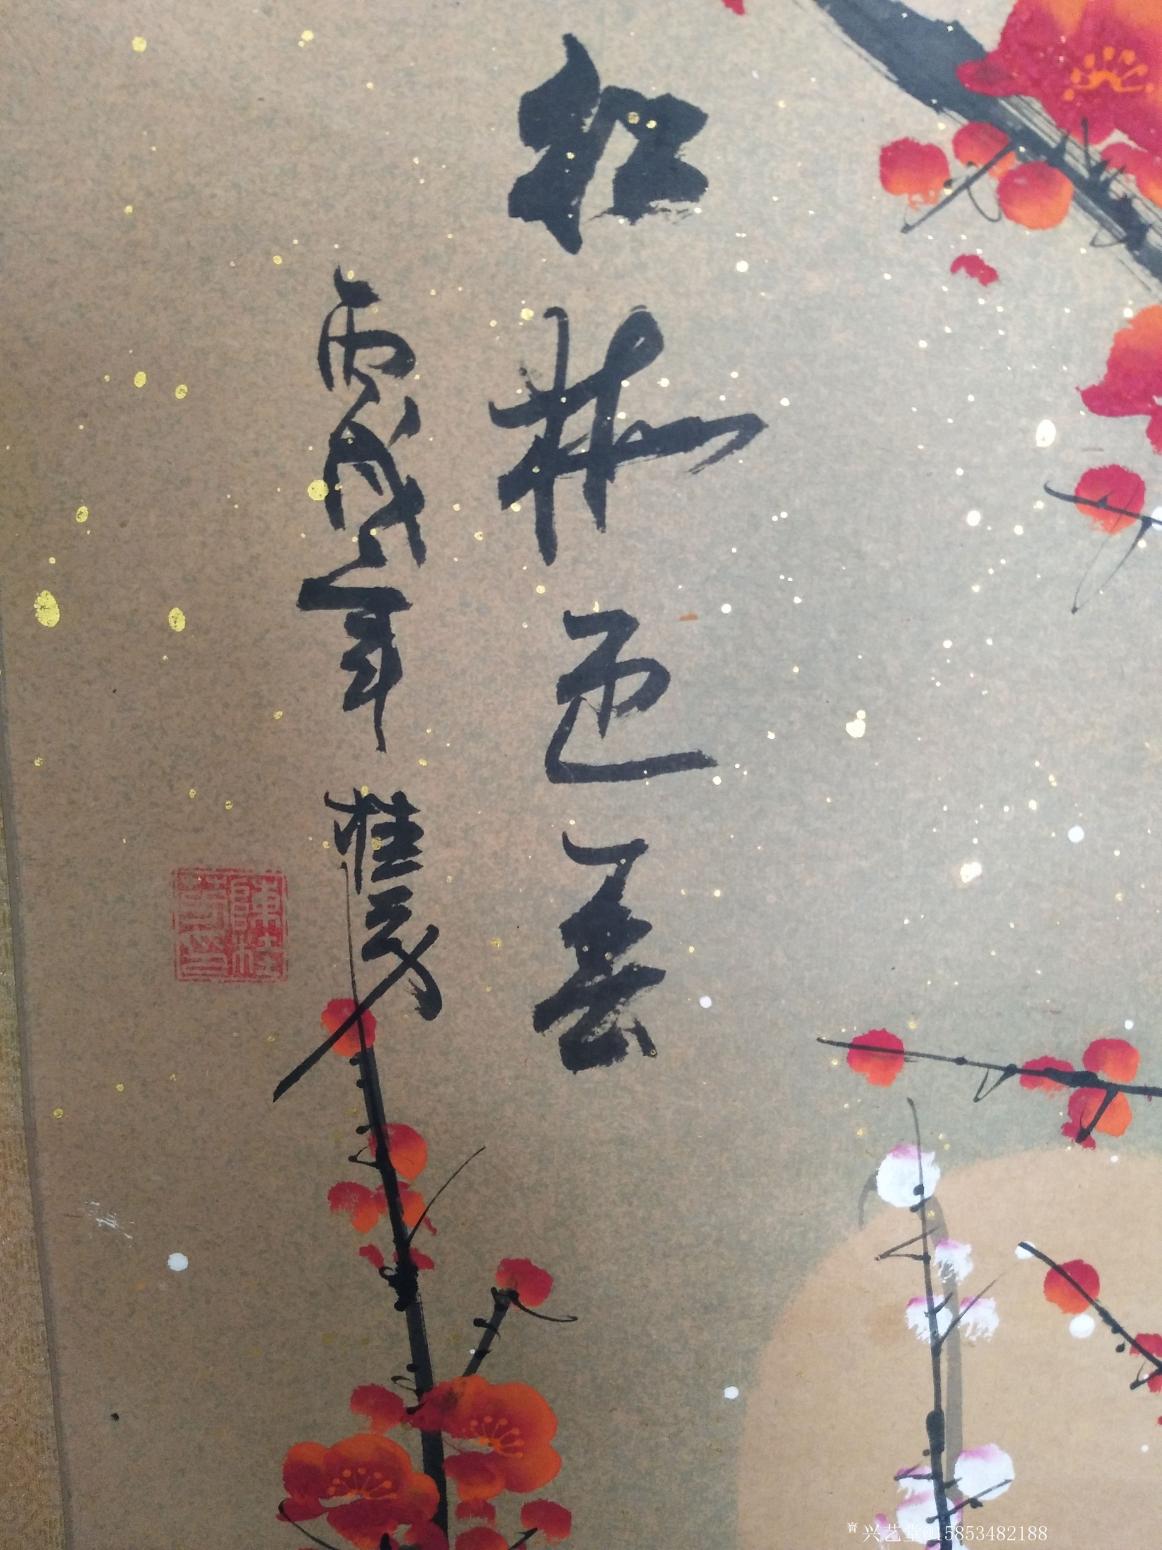 红梅迎春
丙戌年
桂芳
陳桂芳印
兴艺堂15853482188